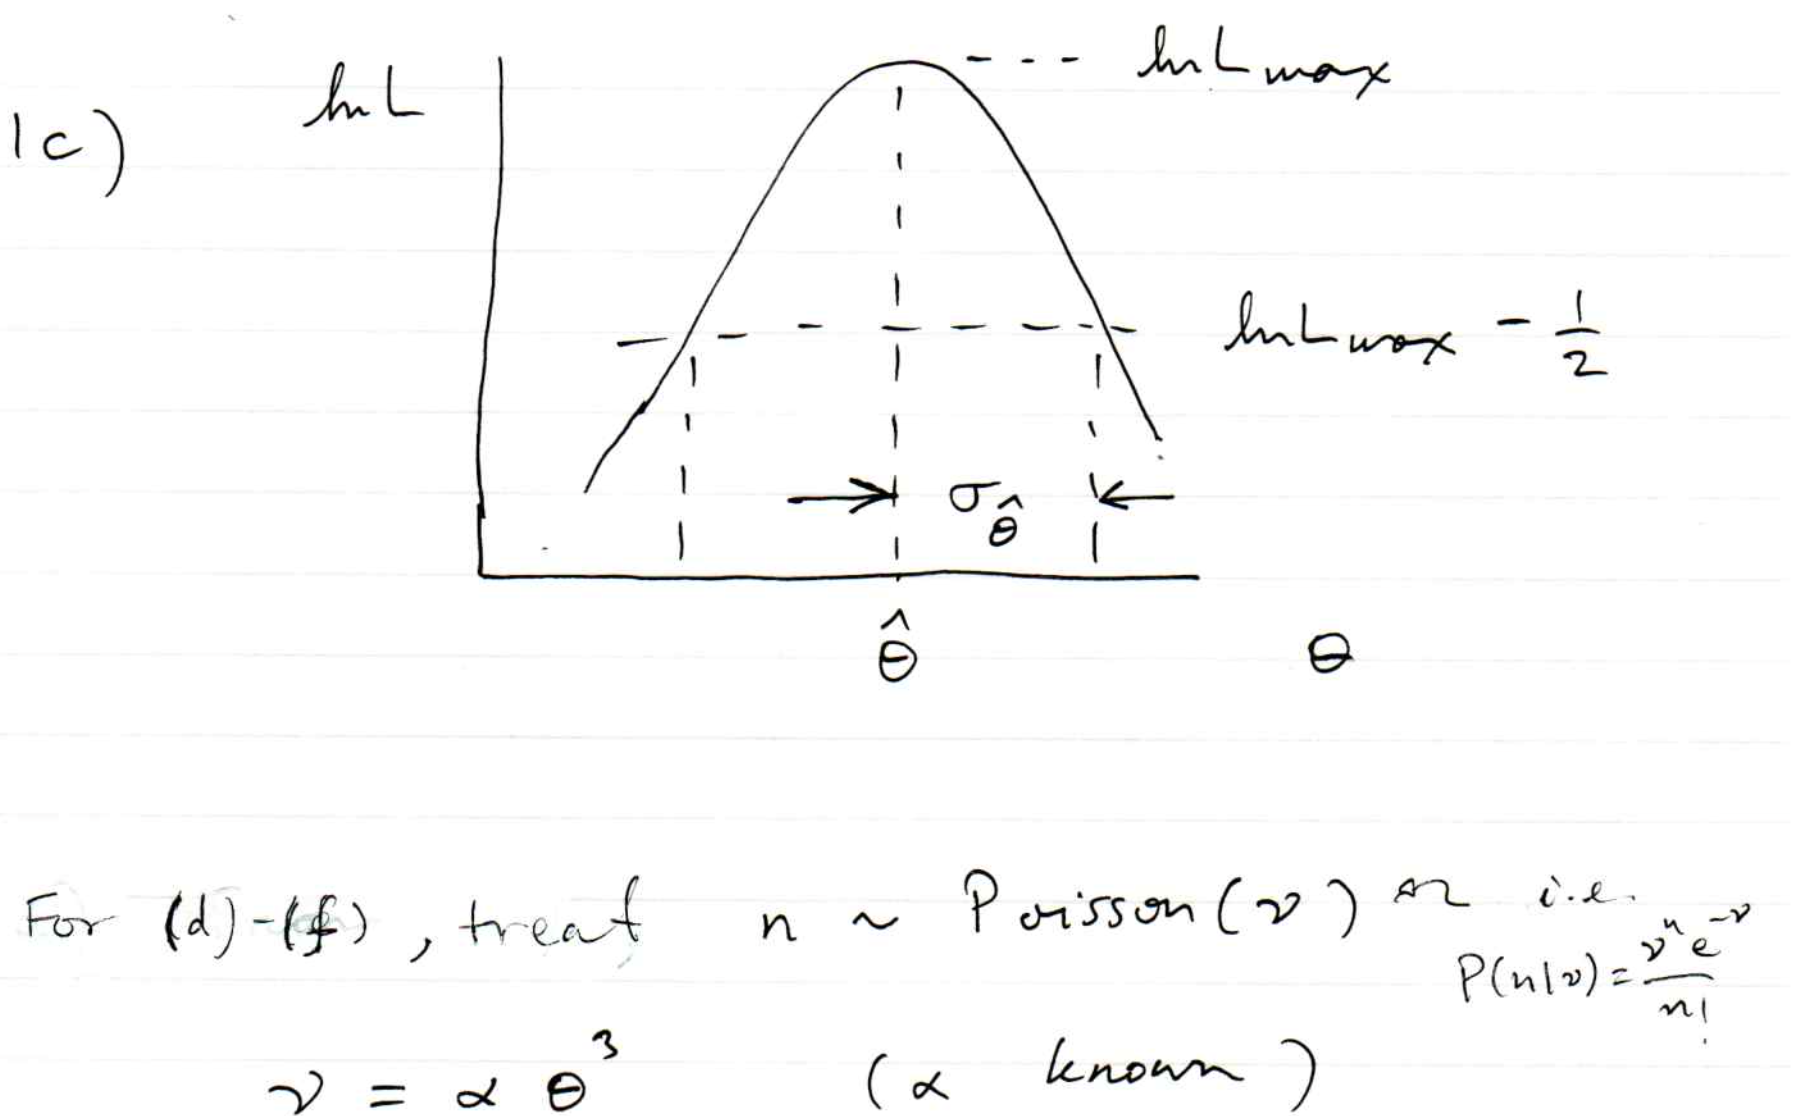 ln L
--- ln Lmax
1c)
ln Lmax - 1/2
σ_θ̂
θ̂
θ
For (d)-(f), treat n ~ Poisson(ν) i.e.
P(n|ν) = ν^n e^-ν / n!
ν = α θ^3 (α known)